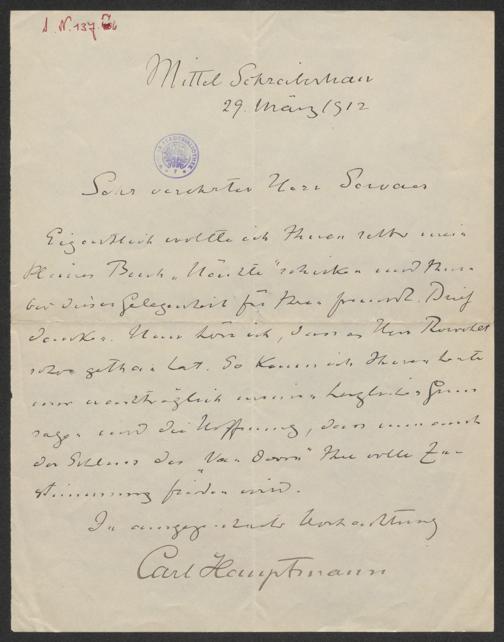 I. N. 137.
Mittel Schreiberhau
29. März 1912
Sehr verehrter Herr Servaes
Eigentlich wollte ich Ihnen selber mein
kleines Buch „Nächte“ schicken und Ihnen
bei dieser Gelegenheit für Ihren freundl. Brief
danken. Nun höre ich, dass es Herr Rowohlt
schon gethan hat. So kann ich Ihnen heute
nur nachträglich meinen herzlichen Gruss
sagen und die Hoffnung, dass nun auch
der Schluss des „Van Doorn“ Ihre volle Zu-
stimmung finden wird.
In ausgezeichneter Hochachtung
Carl Hauptmann